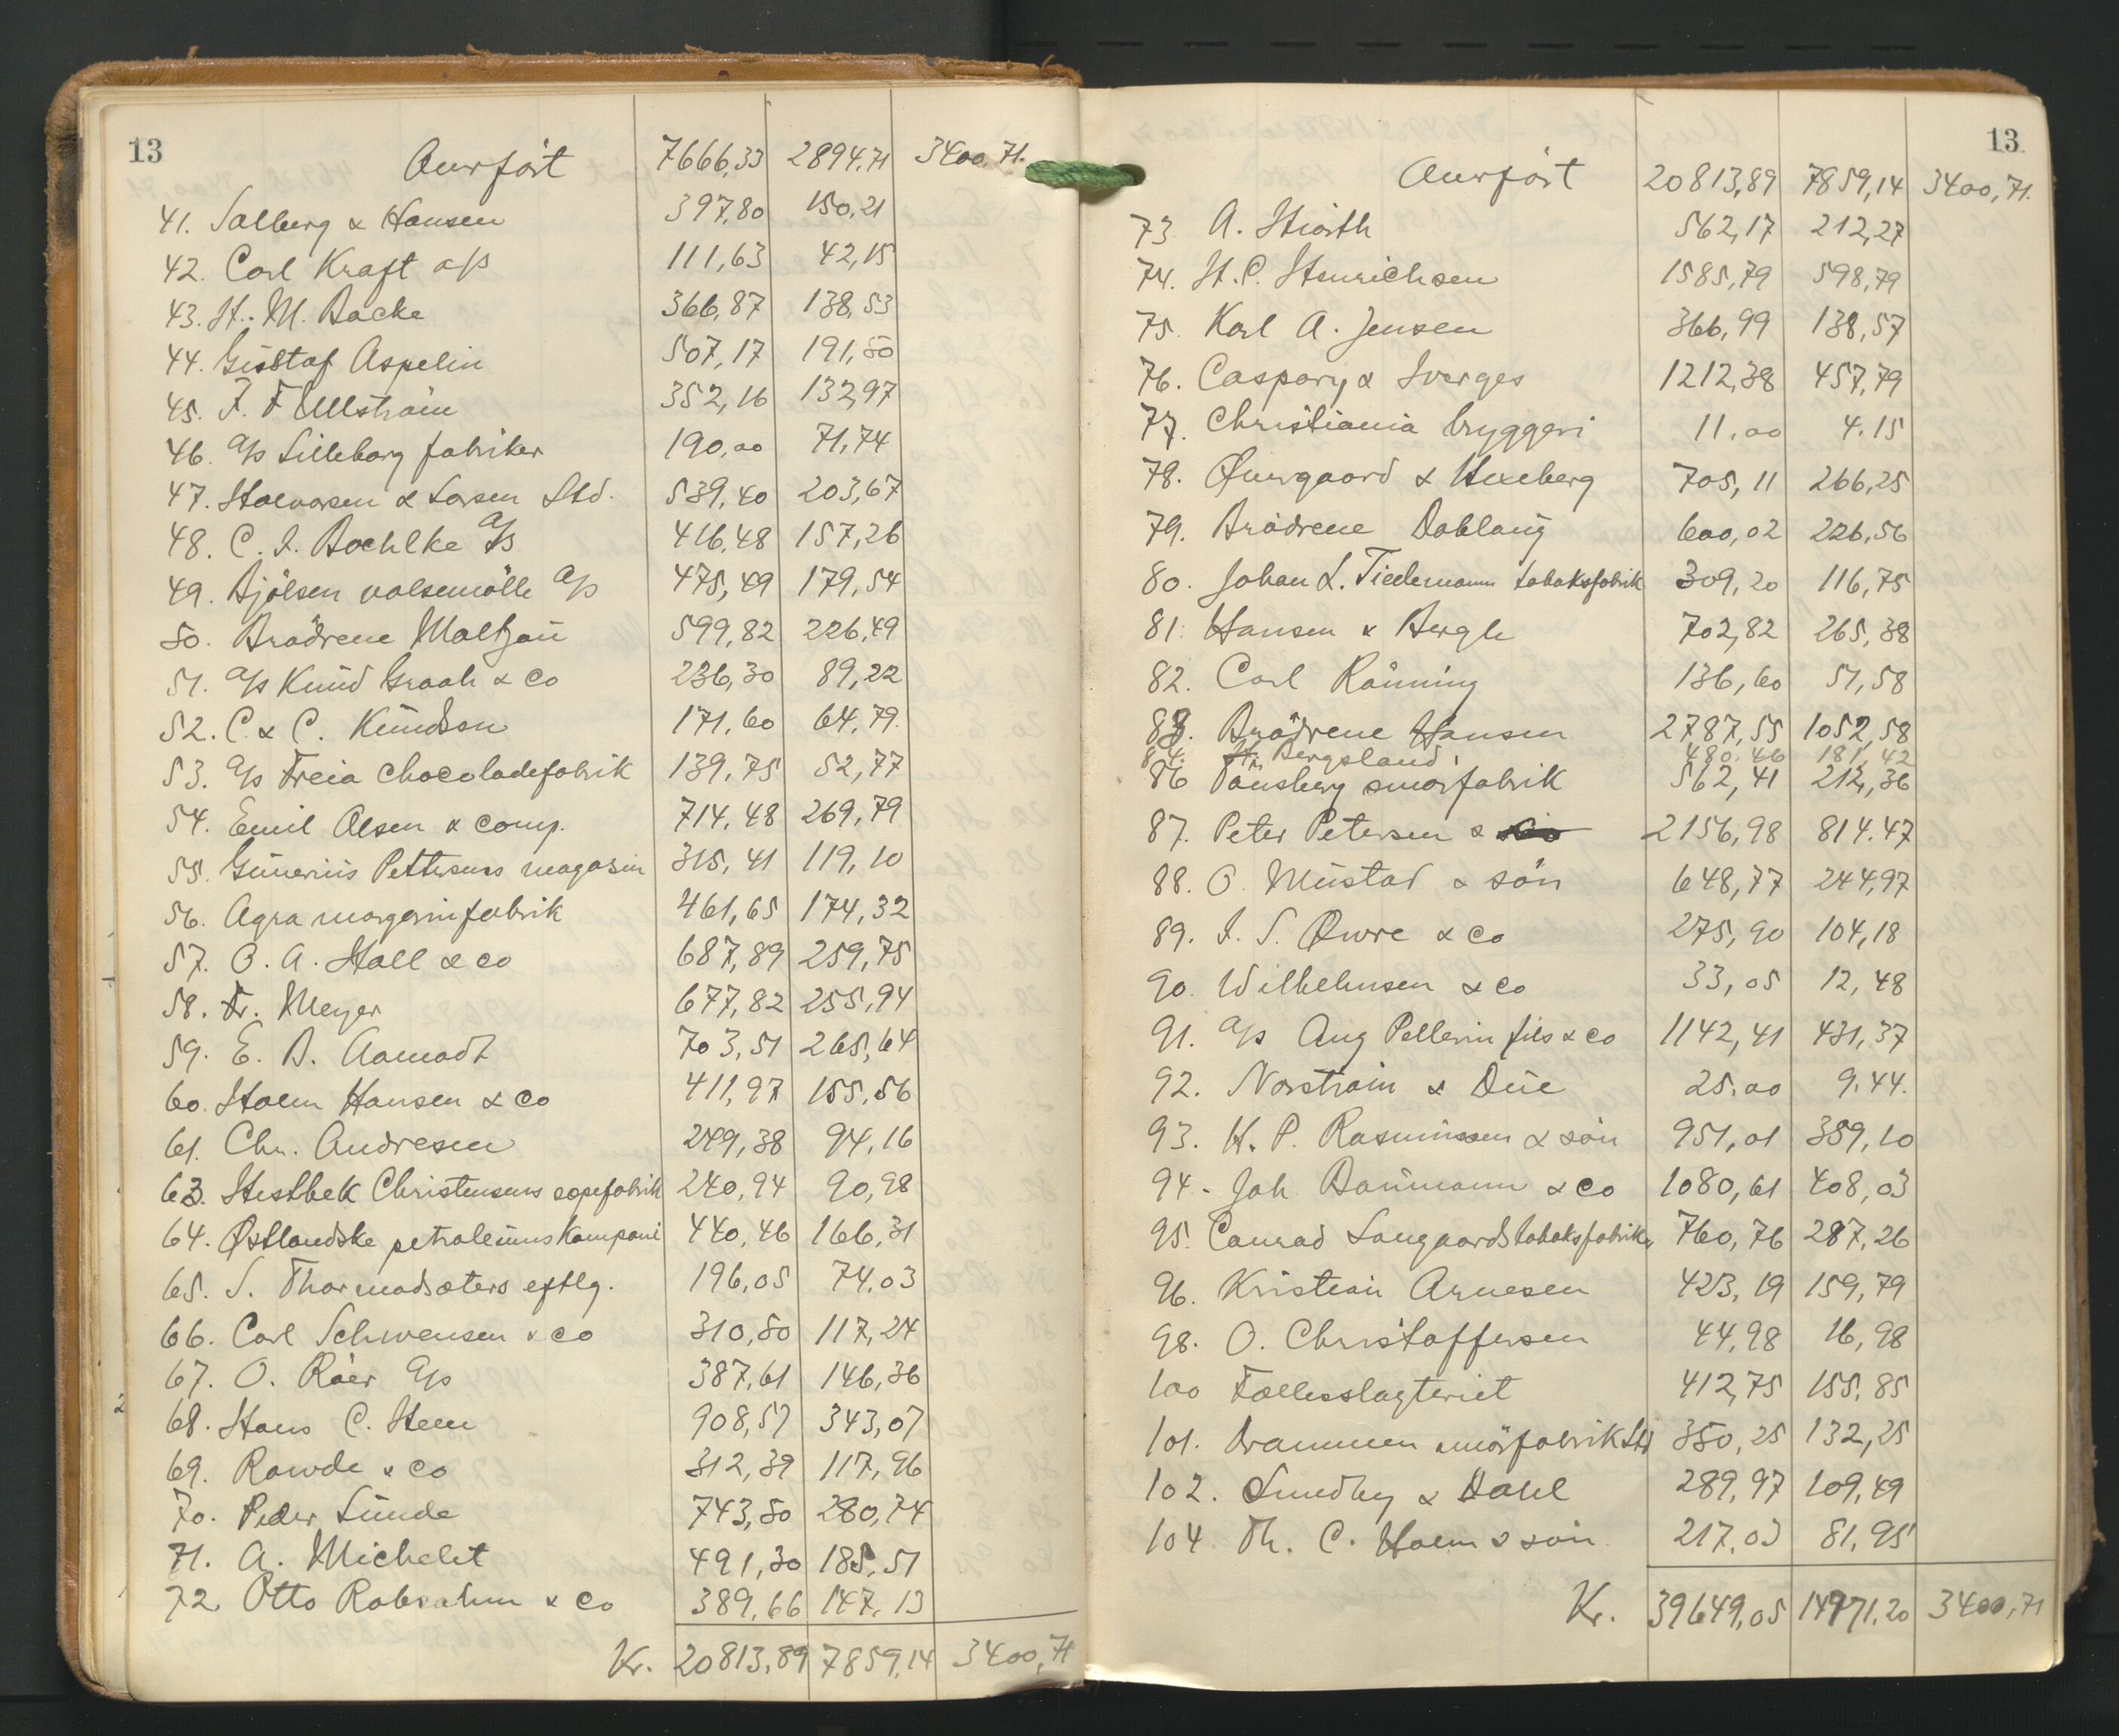 13
Overført 7666,33 2894,71 3400,71.
41. Salberg & Hansen 397,80 150,21
42. Carl Kraft a/s 111,63 42,15
43. H. M. Backe 366,87 138,53
44. Gustaf Aspelin 507,17 191,50
45. F. F Ullström 352,16 132,97
46. A/s Lilleborg fabriker 190,00 71,74
47. Halvorsen & Larsen Ltd. 539,40 203,67
48. C. J. Boehlke A/s 416,48 157,26
49. Bjölsen valsemölle A/s 475,49 179,54
50. Brödrene Maltzau 599,82 226,49
51. A/s Knud Graah & co 236,30 89,22
52. C. & C. Knudson 171,60 64,79.
53. A/s Freia chocoladefabrik 139,75 52,77
54. Emil Olsen & comp. 714,48 269,79
55. Gunerius Pettersens magasin 315,41 119,10
56. Agra margarinfabrik 461,65 174,32
57. O. A. Hall & co 687,89 259,75
58. Fr. Meyer 677,82 255,94
59. E. B. Aamodt 703,51 265,64
60. Holm Hansen & co 411,97 155,56
61. Chr. Andresen 249,38 94,16
63. Hestbek Christensens sopefabrik 240,94 90,98
64. Østlandske petroleumskompani 440,46 166,31
65. S. Thormodsæters eftlg. 196,05 74,03
66. Carl Schwensen & co 310,50 117,24
67. O. Röer A/s 387,61 146,36
68. Hans C. Steen 908,57 343,07
69. Rawde & co 312,39 117,96
70. Peder Lunde 743,50 280,74
71. A. Michelet 491,30 185,51
72. Otto Robsahm & co 389,66 147,13
Kr. 20813,89 7859,14 3400,71
13
Overført 20813,89 7859,14 3400,71.
73. A. Hiorth 562,17 212,27
74. H. C. Henrichsen 1585,79 598,79
75. Karl A. Jensen 366,99 138,57
76. Caspary & Sverges 1212,38 457,79
77. Christiania bryggeri 11.00 4.15
78. Øvergaard & Hexeberg 705,11 266,25
79. Brødrene Dobloug 600,02 226,56
80. Johan L. Tiedemanns tobaksfabrik 309,20 116,75
81. Hansen & Bergh 702,82 265,38
82. Carl Rönning 136,60 51,58
83. Brödrene Hansen 2787,55 1052,58
84. H. Bergsland 480.46 181,42
86 Tønsberg smørfabrik 562,41 212,36
87. Peter Petersen & co 2156,98 814.47
88. O. Mustad & sön 648,77 244,97
89. J. S. Øwre & co 275,90 104,18
90. Wilhelmsen & co 33,05 12,48
91. A/s Aug Pellerin fils & co 1142,41 431,37
92. Norström & Due 25.00 9.44.
93. H. P. Rasmussen & sön 951,01 359,10
94. Joh Baumann & co 1080,61 408,03
95. Conrad Langaards tobaksfabrik, 760,76 287,26
96. Kristian Arnesen 423,19 159,79
98. O. Christoffersen 44,98 16,98
100 Fællesslagteriet 412,75 155,85
101. Drammen smörfabrik Ltd 350,25 132,25
102. Lundby & Dahl 289,97 109,49
104 Th. C. Holm & sön 217,03 81,95
Kr. 39649,05 14971,20 3400,71